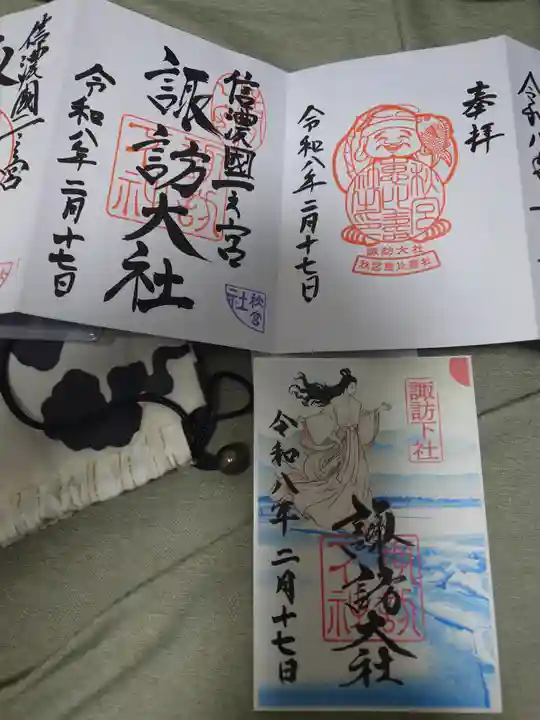 信濃國一之宮
信濃國一之宮
諏訪大社
令和八年二月十七日
秋宮
社
奉拝
令和八年二月十七日
諏訪大社
秋宮恵比壽社
令和八年
諏訪下社
諏訪大社
令和八年二月十七日